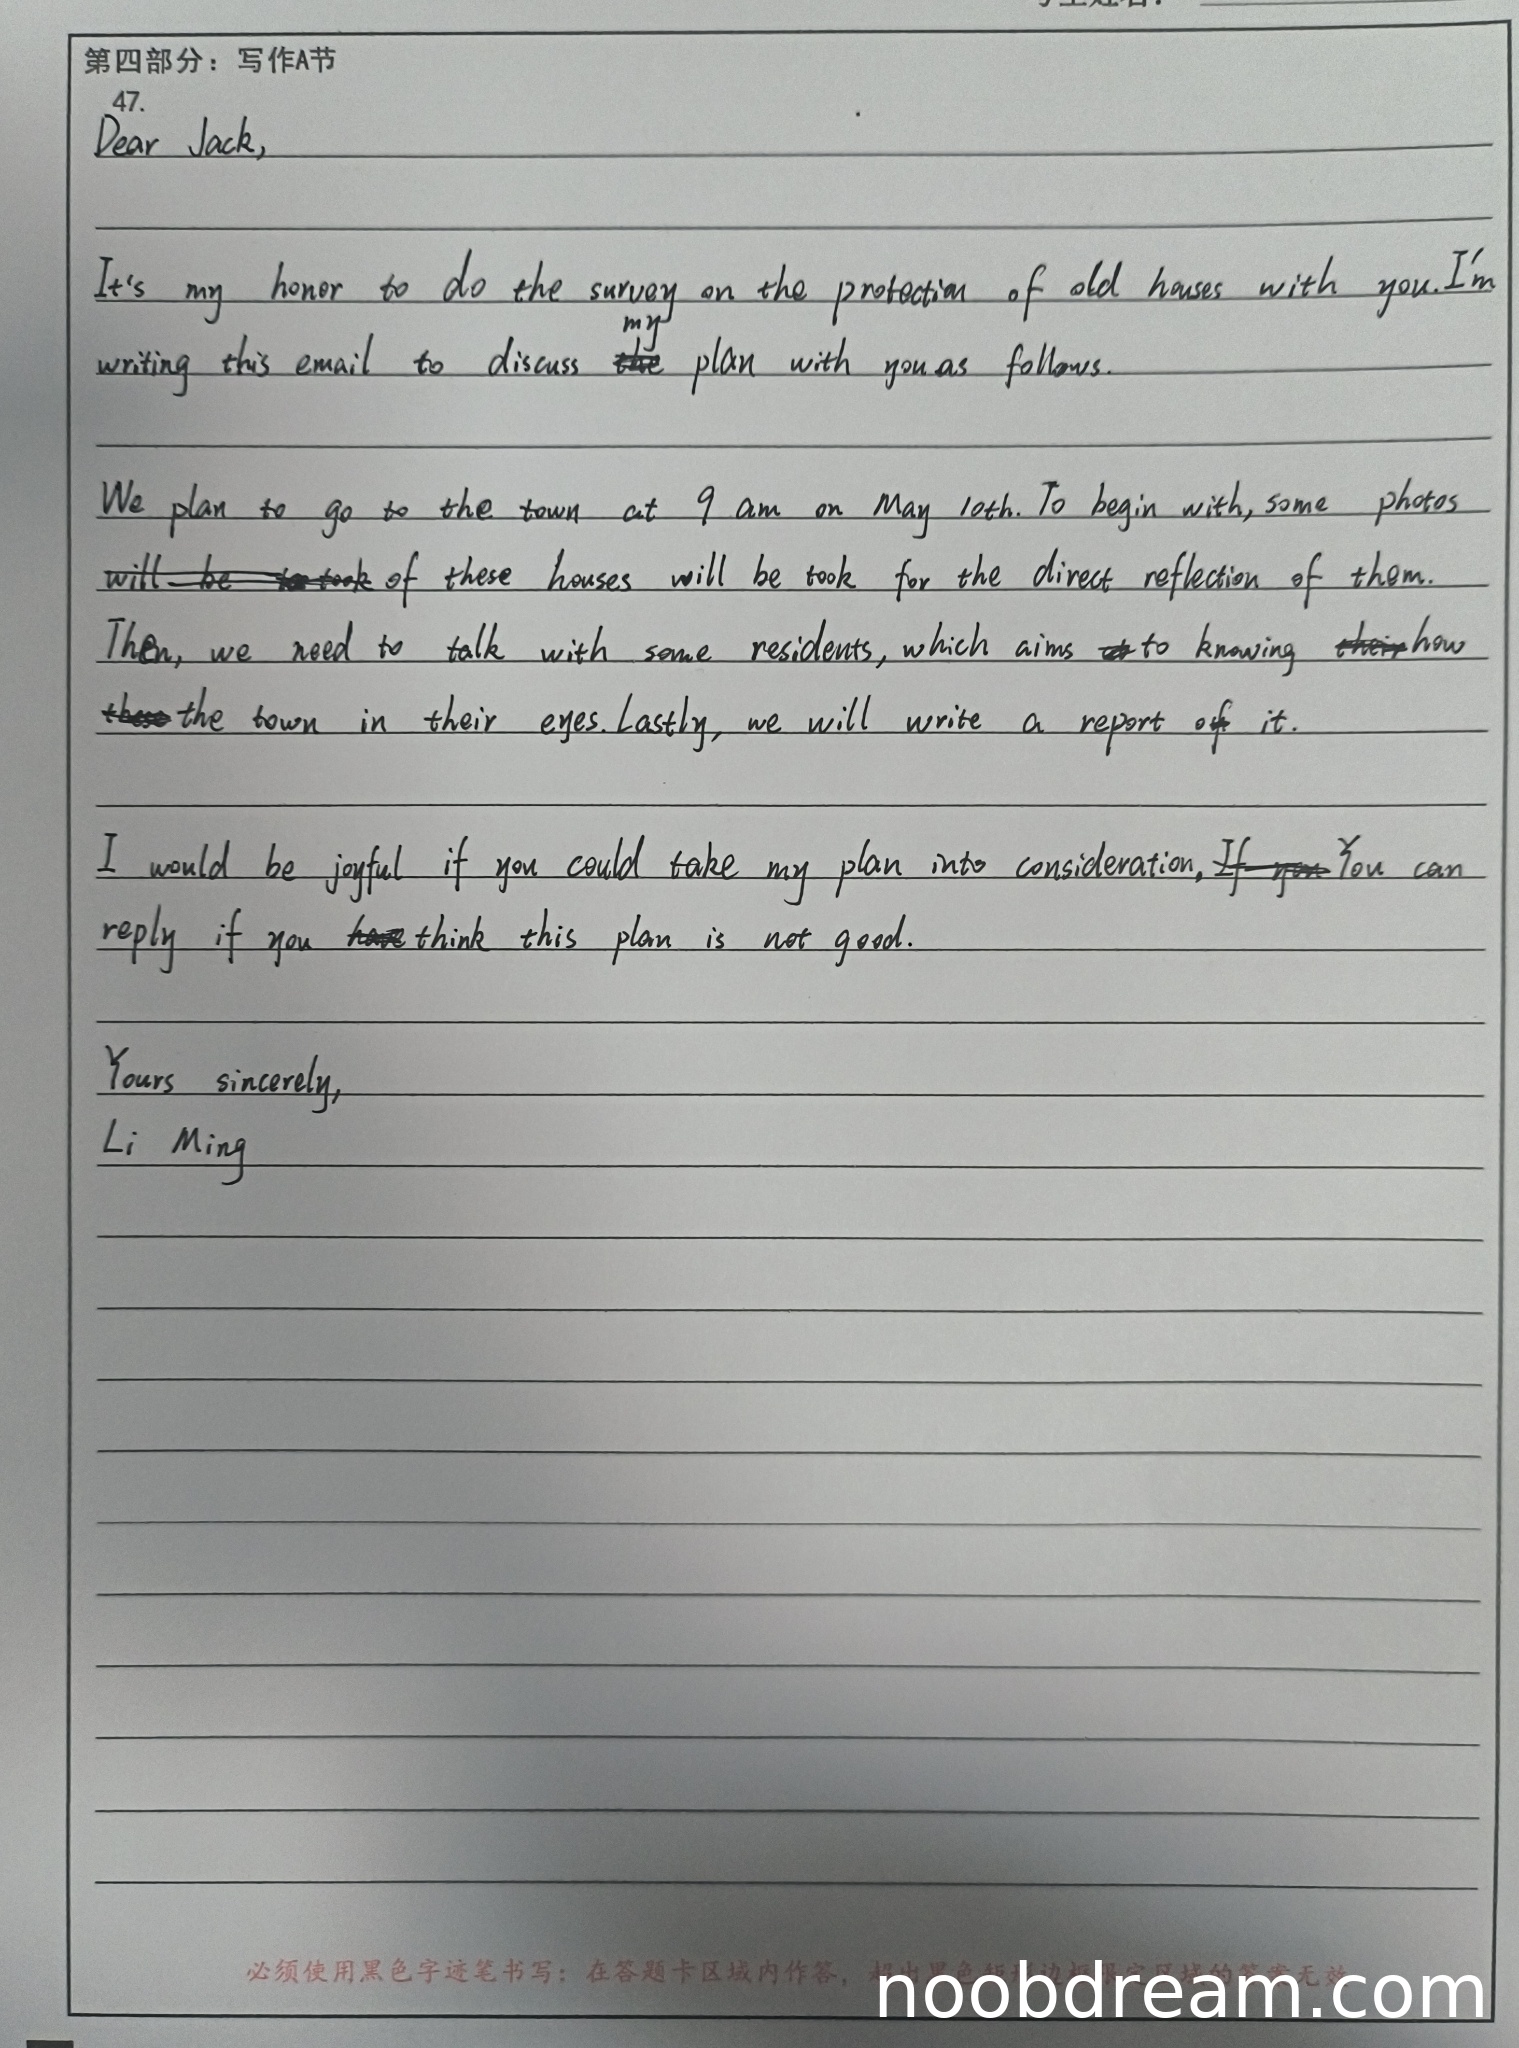 第四部分：写作A节
47.
Dear Jack,
It's my honor to do the survey on the protection of old houses with you. I'm
my
writing this email to discuss the plan with you as follows.
We plan to go to the town at 9 am on May 10th. To begin with, some photos
will be to took of these houses will be took for the direct reflection of them.
Then, we need to talk with some residents, which aims to knowing their how
these the town in their eyes. Lastly, we will write a report of it.
I would be joyful if you could take my plan into consideration, If you You can
reply if you have think this plan is not good.
Yours sincerely,
Li Ming
必须使用黑色字迹笔书写；在答题卡区域内作答，超出黑色矩形边框限定区域的答案无效
noobdream.com